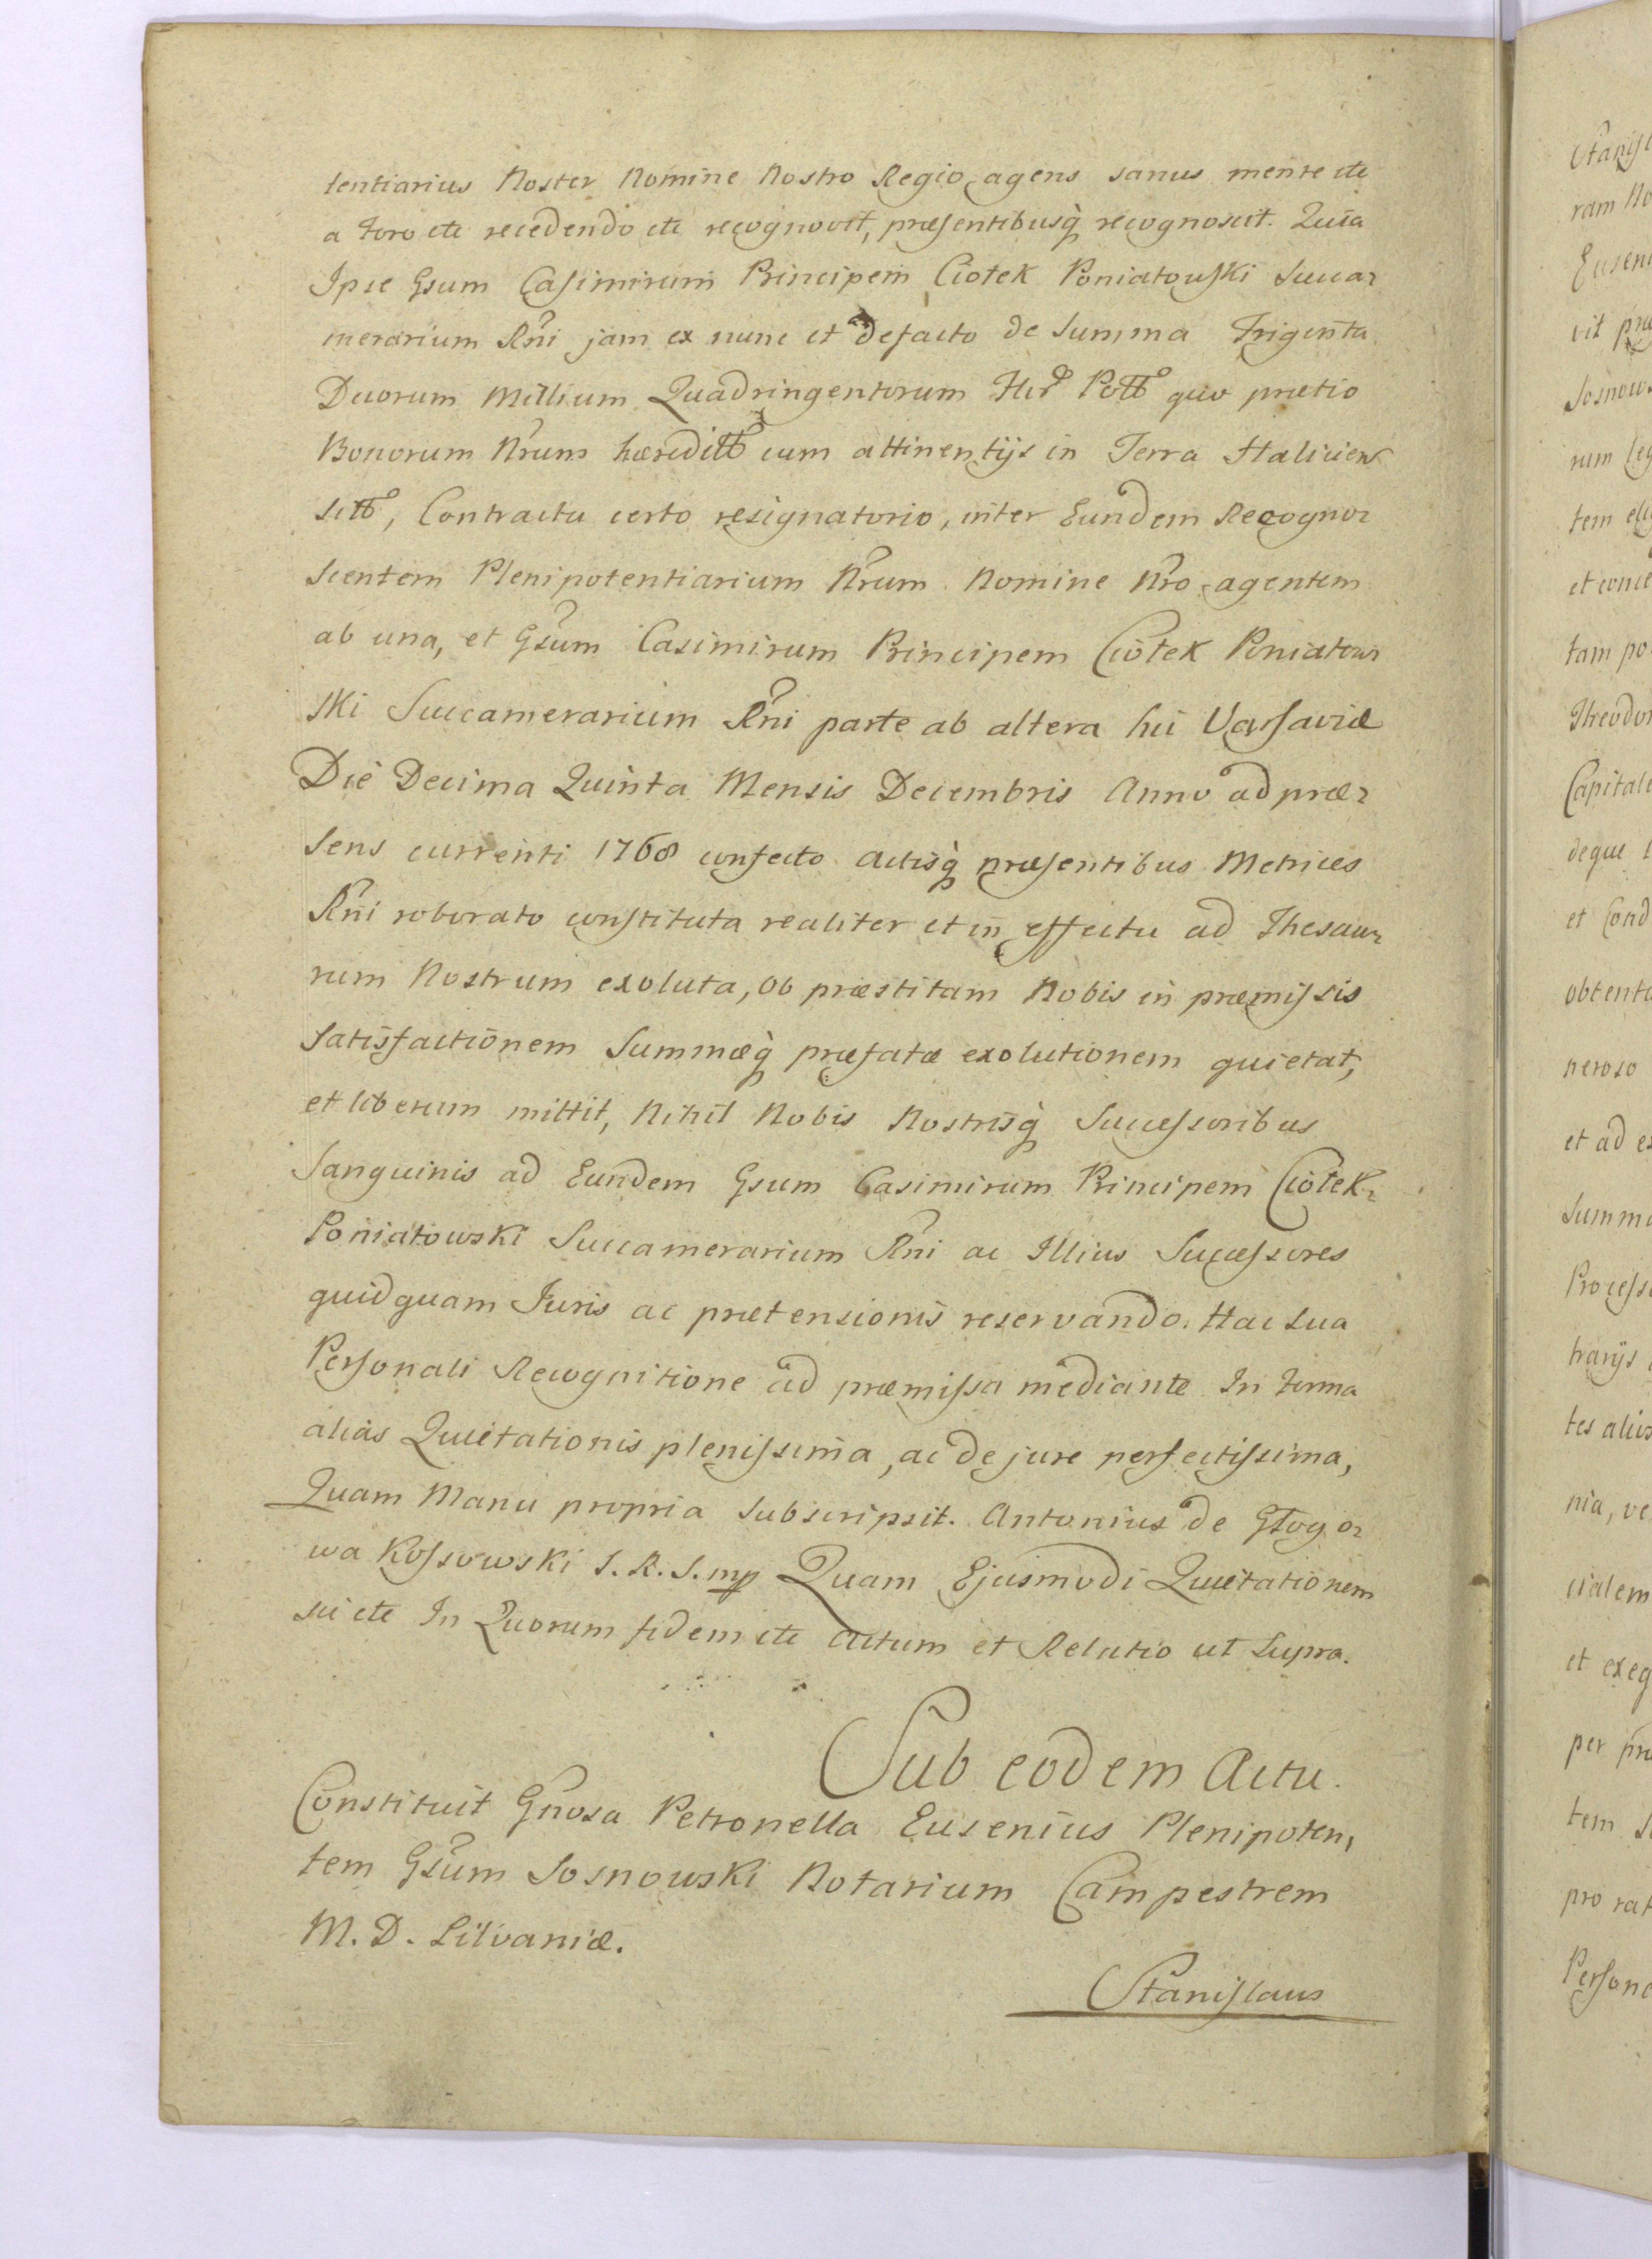 tentiarius Noster Nomine Nostro Regio agens sanus mente etc
a Foro etc recedendo etc recognovit, præsentibusq̀ recognoscit. Quia
Ipse Gsum Casimirum Principem Ciołek Poniatowski Succa-
merarium Rñi jam ex nunc et defacto de Summa Triginta
Duorum Millium Quadringentorum Flrõ Pollõ quo prætio
Bonorum Nrum hæredittõ cum attinentijs in Terra Halicien
sittõ, Contractu certo resignatorio, inter Eundem Recogno-
scentem Plenipotentiarium Nrum Nomine Nro agentem
ab una, et Gsum Casimirum Principem Ciołek Poniatow-
ski Succamerarium Rñi parte ab altera hic Varsaviæ
Die Decima Quinta Mensis Decembris Anno ad præ-
sens currenti 1768 confecto Actisq̀ præsentibus Metrices
Rñi roborato constituta realiter et in effectu ad Thesau-
rum Nostrum exoluta, ob præstitam Nobis in præmissis
satisfactionem Summæq̀ præfatæ exolutionem quietat,
et liberum mittit, Nihil Nobis Nostrisq̀ Successoribus
Sanguinis ad Eundem Gsum Casimirum Principem Ciołek-
Poniatowski Succamerarium Rñi ac Illius Successores
quidquam Juris ac prætensionis reservando. Hac sua
Personali Recognitione ad præmissa mediante In Forma
alias Quietationis plenissima, ac de jure perfectissima,
Quam Manu propria subscripsit. Antonius de Głogo-
wa Kossowski S. R. S. mp Quam Ejusmodi Quietationem
sci etc In Quorum fidem etc Actum et Relatio ut supra.
Sub eodem Actu.
Constituit Gñosa Petronella Eusenius Plenipoten,
tem Gsum Sosnowski Notarium Campestrem
M. D. Litvaniæ.
Stanislaus